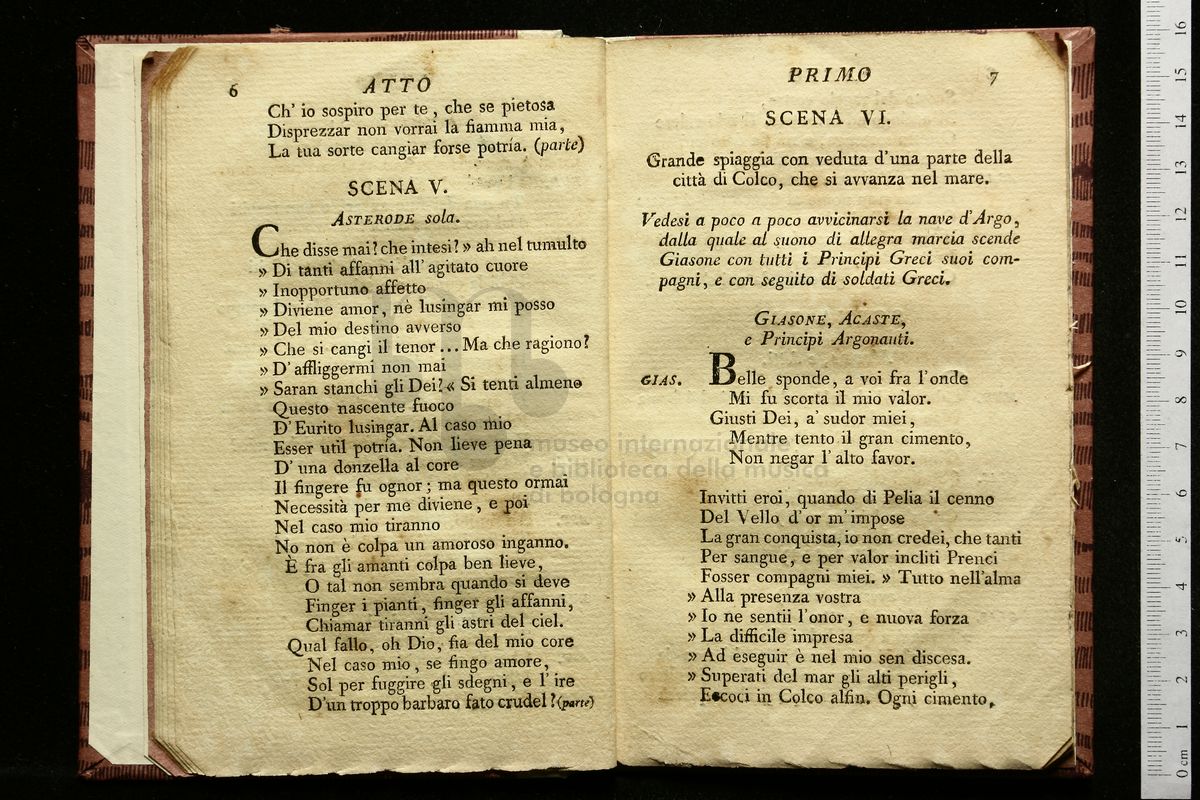 6
ATTO
Ch' io sospiro per te, che se pietosa
Disprezzar non vorrai la fiamma mia,
La tua sorte cangiar forse potría. (parte)
SCENA V.
ASTERODE sola.
Che disse mai? che intesi? » ah nel tumulto
» Di tanti affanni all' agitato cuore
» Inopportuno affetto
» Diviene amor, nè lusingar mi posso
» Del mio destino avverso
» Che si cangi il tenor ... Ma che ragiono?
» D' affliggermi non mai
» Saran stanchi gli Dei? « Si tenti almeno
Questo nascente fuoco
D' Eurito lusingar. Al caso mio
Esser util potría. Non lieve pena
D' una donzella al core
Il fingere fu ognor; ma questo ormai
Necessità per me diviene, e poi
Nel caso mio tiranno
No non è colpa un amoroso inganno.
È fra gli amanti colpa ben lieve,
O tal non sembra quando si deve
Finger i pianti, finger gli affanni,
Chiamar tiranni gli astri del ciel.
Qual fallo, oh Dio, fia del mio core
Nel caso mio, se fingo amore,
Sol per fuggire gli sdegni, e l' ire
D'un troppo barbaro fato crudel? (parte)
PRIMO
7
SCENA VI.
Grande spiaggia con veduta d'una parte della
città di Colco, che si avvanza nel mare.
Vedesi a poco a poco avvicinarsi la nave d'Argo,
dalla quale al suono di allegra marcia scende
Giasone con tutti i Principi Greci suoi com-
pagni, e con seguito di soldati Greci.
GIASONE, ACASTE,
e Principi Argonauti.
GIAS. Belle sponde, a voi fra l'onde
Mi fu scorta il mio valor.
Giusti Dei, a' sudor miei,
Mentre tento il gran cimento,
Non negar l' alto favor.
Invitti eroi, quando di Pelia il cenno
Del Vello d'or m' impose
La gran conquista, io non credei, che tanti
Per sangue, e per valor incliti Prenci
Fosser compagni miei. » Tutto nell'alma
» Alla presenza vostra
» Io ne sentii l'onor, e nuova forza
» La difficile impresa
» Ad eseguir è nel mio sen discesa.
» Superati del mar gli alti perigli,
Eccoci in Colco alfin. Ogni cimento,
museo internazionale
e biblioteca della musica
di bologna
0 cm 1 2 3 4 5 6 7 8 9 10 11 12 13 14 15 16